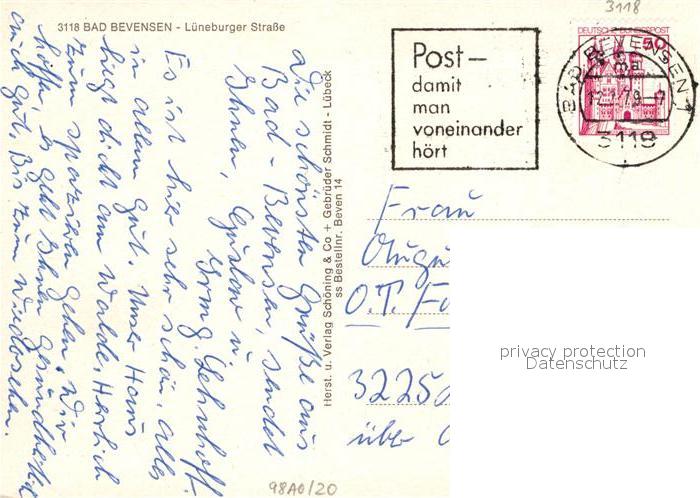 3118
3118 BAD BEVENSEN - Lüneburger Straße
Post-
damit
man
voneinander
hört
DEUTSCHE BUNDESPOST
50
BAD BEVENSEN 1
3118
Die schönsten Grüße aus
Bad-Bevensen, sendet
Ihnen, Gustav u.
Irmg. Lehnhoff.
Es ist hier sehr schön, alles
in allem gut. Unser Haus
liegt dicht am Walde, Herrlich
zum spaziren gehen. Wir
hoffe, es geht Ihnen gesundheitlich
auch gut. Bis zum Wiedersehen.
Herst. u. Verlag Schöning & Co + Gebrüder Schmidt - Lübeck
ss Bestellnr. Beven 14
Frau
O.T.
3225
über
privacy protection
Datenschutz
98A0/20